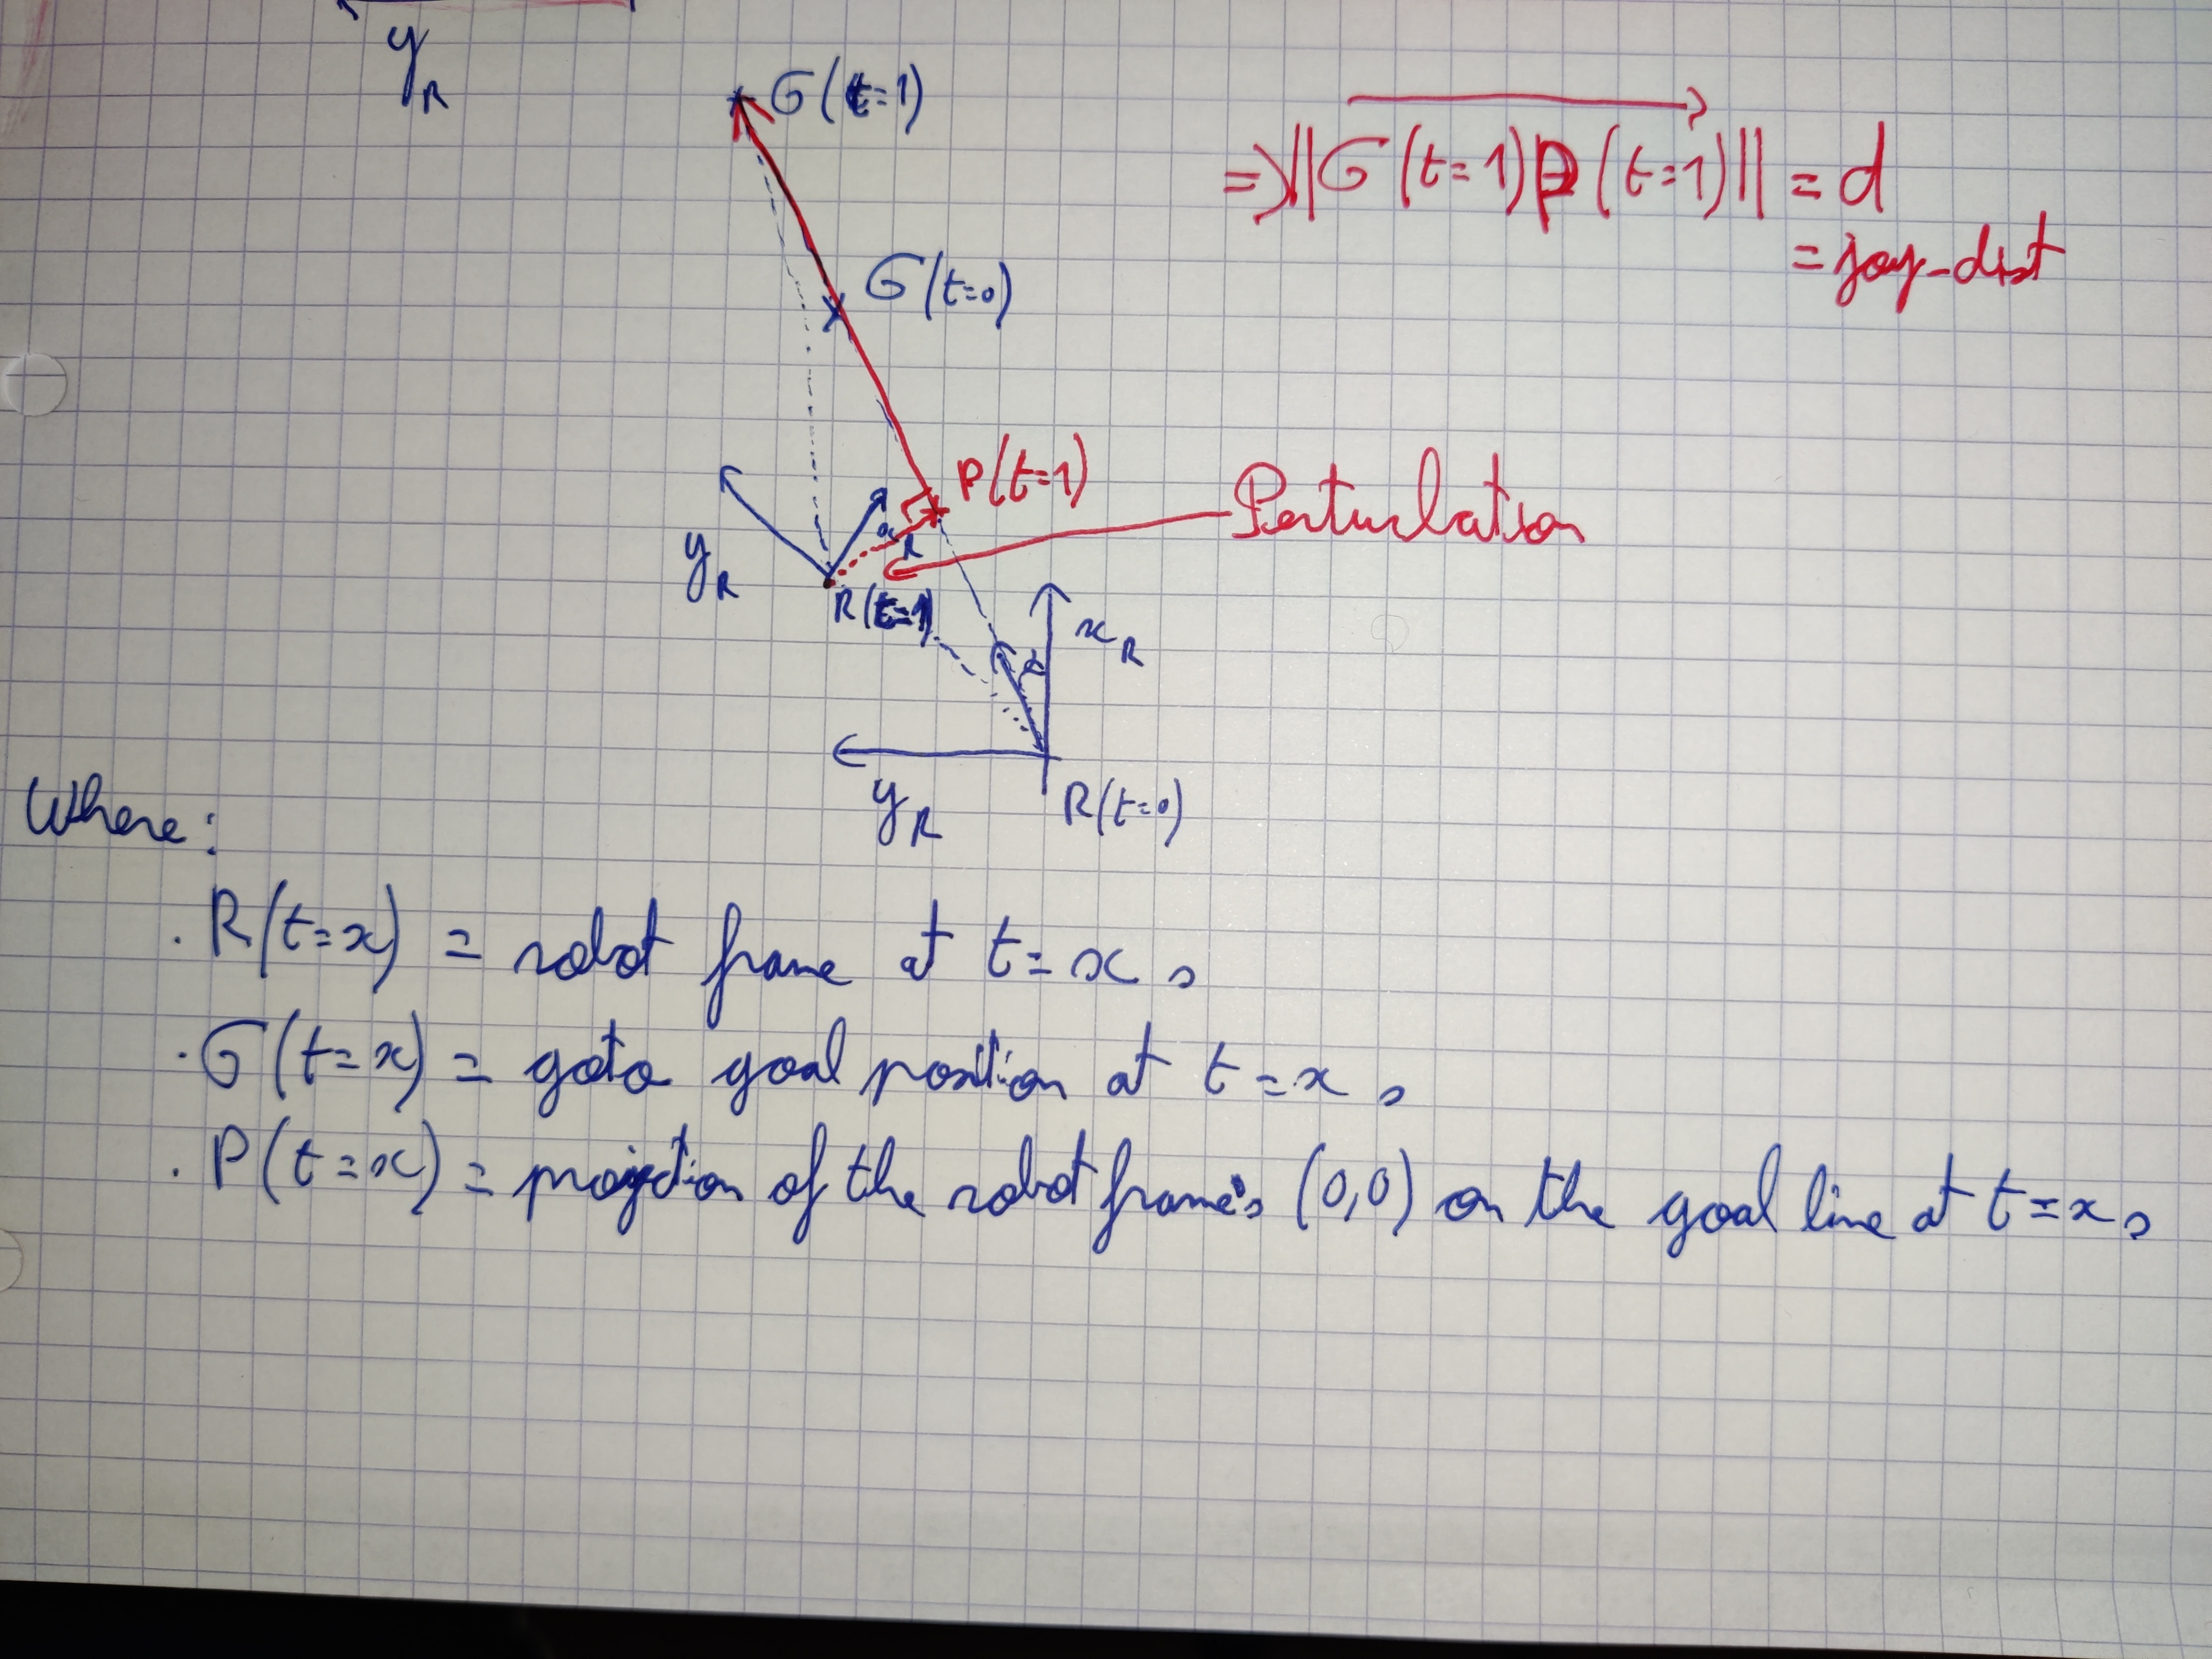 y_R
G(t=1)
=> ||G(t=1)P(t=1)|| = d
= joy_dist
G(t=0)
P(t=1)
Perturbation
x_R
y_R
R(t=1)
x_R
α
y_R
R(t=0)
Where:
· R(t=x) = robot frame at t=x s
· G(t=x) = goto goal position at t=x s
· P(t=x) = projection of the robot frame's (0,0) on the goal line at t=x s